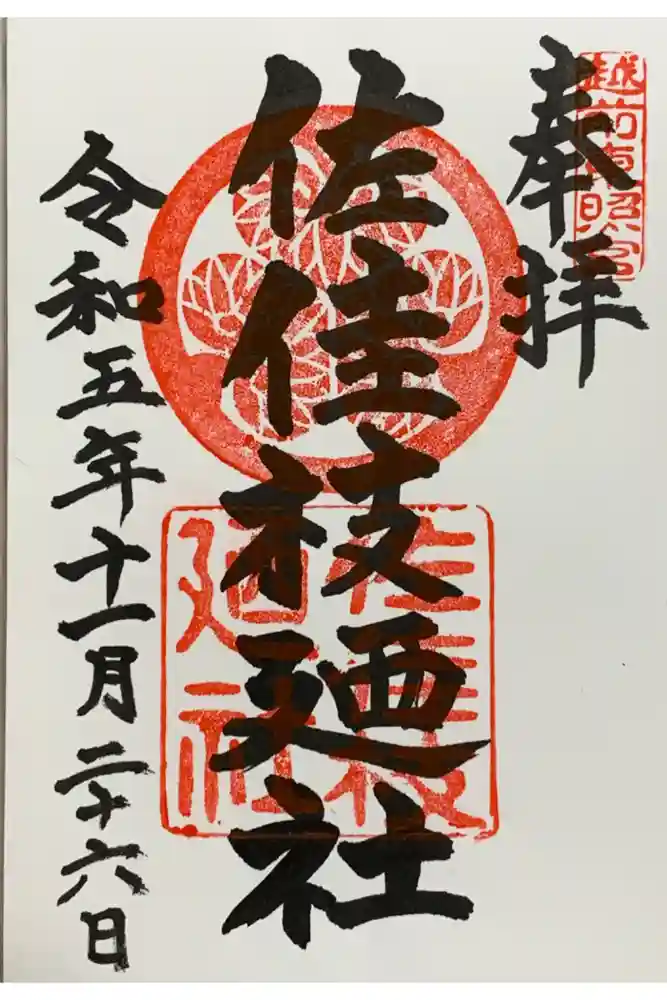 奉拝
越前東照宮
佐佳枝廼社
佐佳枝
廼社
令和五年十一月二十六日